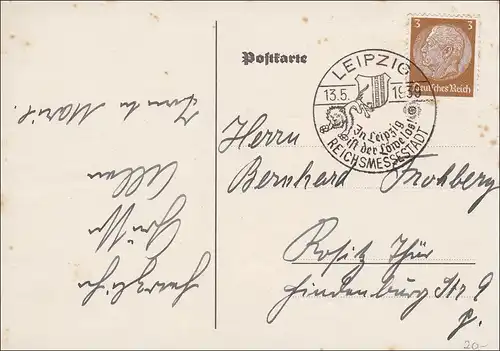 Postkarte
3 3
Deutsches Reich
LEIPZIG
13.5. 1939
In Leipzig
ist der Löwe los!
REICHSMESSESTADT
Herrn
Bernhard Frohberg
Rositz Thür
Hindenburg Str 9
Herzliche
Grüße
Allen
20.-